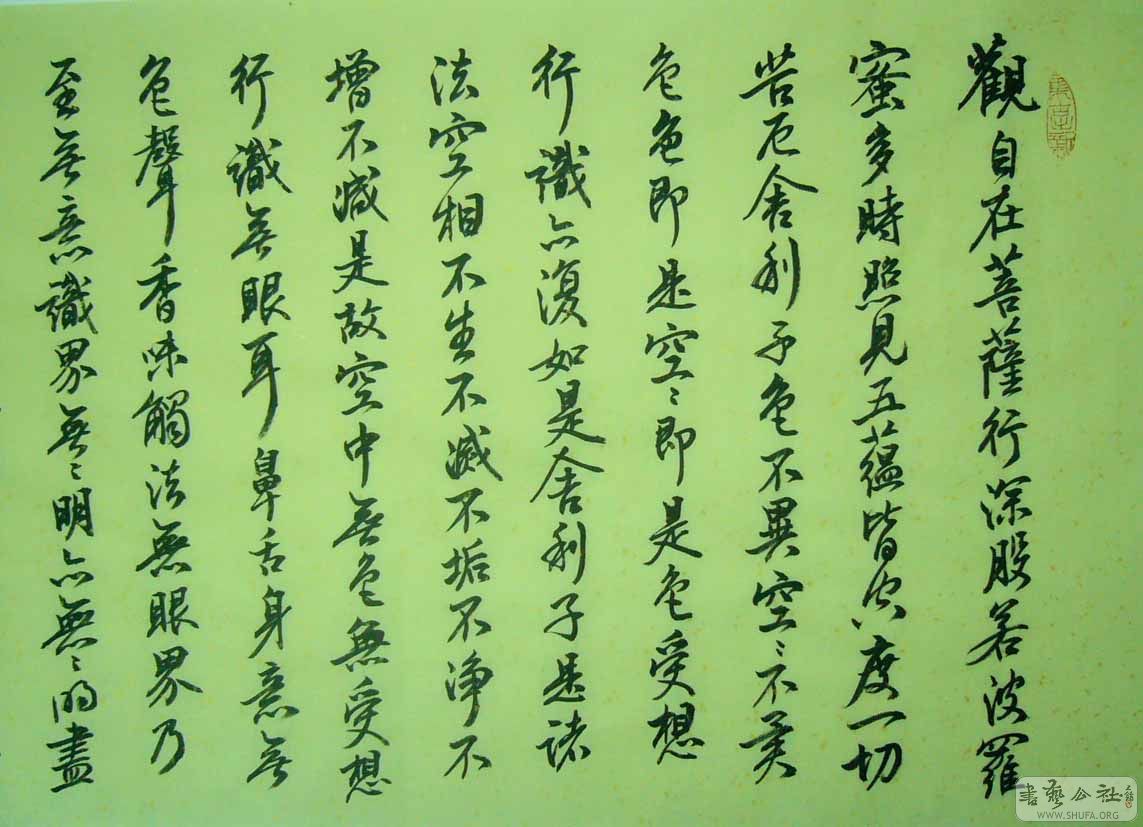 觀自在菩薩行深般若波羅
蜜多時照見五蘊皆空度一切
苦厄舍利子色不異空〻不異
色色即是空〻即是色受想
行識亦復如是舍利子是諸
法空相不生不滅不垢不淨不
增不減是故空中無色無受想
行識無眼耳鼻舌身意無
色聲香味觸法無眼界乃
至無意識界無〻明亦無〻明盡
書藝公社
WWW.SHUFA.ORG